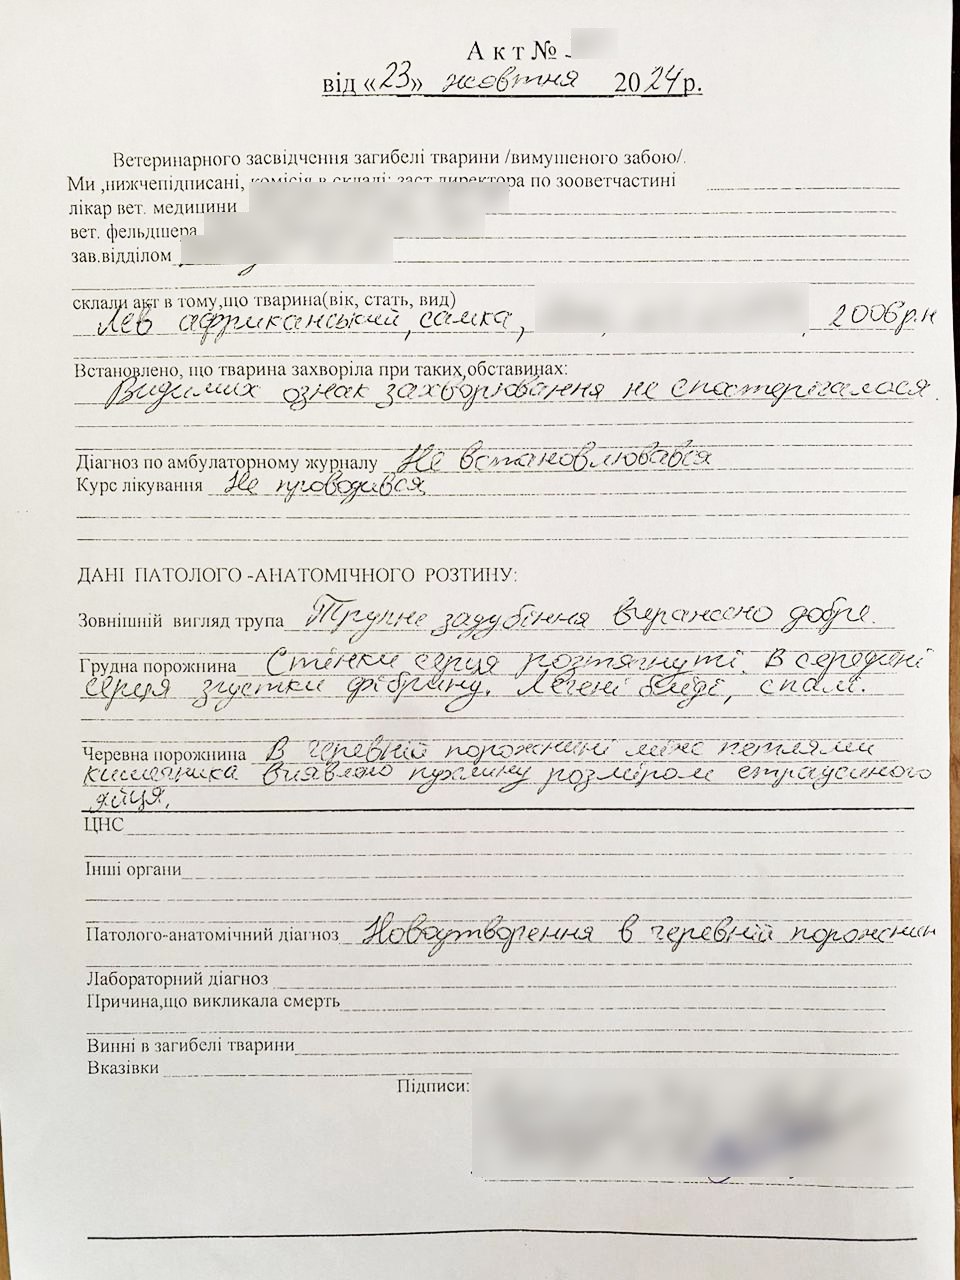 Акт №
від «23» жовтня 2024 р.
Ветеринарного засвідчення загибелі тварини /вимушеного забою/.
Ми ,нижчепідписані, комісія в складі: заст директора по зооветчастині
лікар вет. медицини
вет. фельдшера
зав.відділом
склали акт в тому,що тварина(вік, стать, вид)
Лев африканський, самка, 2006р.н
Встановлено, що тварина захворіла при таких обставинах:
Видимих ознак захворювання не спостерігалося.
Діагноз по амбулаторному журналу Не встановлювався
Курс лікування Не проводився
ДАНІ ПАТОЛОГО -АНАТОМІЧНОГО РОЗТИНУ:
Зовнішній вигляд трупа Трупне задубіння виражено добре.
Грудна порожнина Стінки серця розтягнуті. В середині
серця згустки фібрину. Легені бліді, спалі.
Черевна порожнина В черевній порожнині між петлями
кишечника виявлено пухлину розміром страусиного
яйця.
ЦНС
Інші органи
Патолого-анатомічний діагноз Новоутворення в черевній порожнині
Лабораторний діагноз
Причина,що викликала смерть
Винні в загибелі тварини
Вказівки
Підписи: